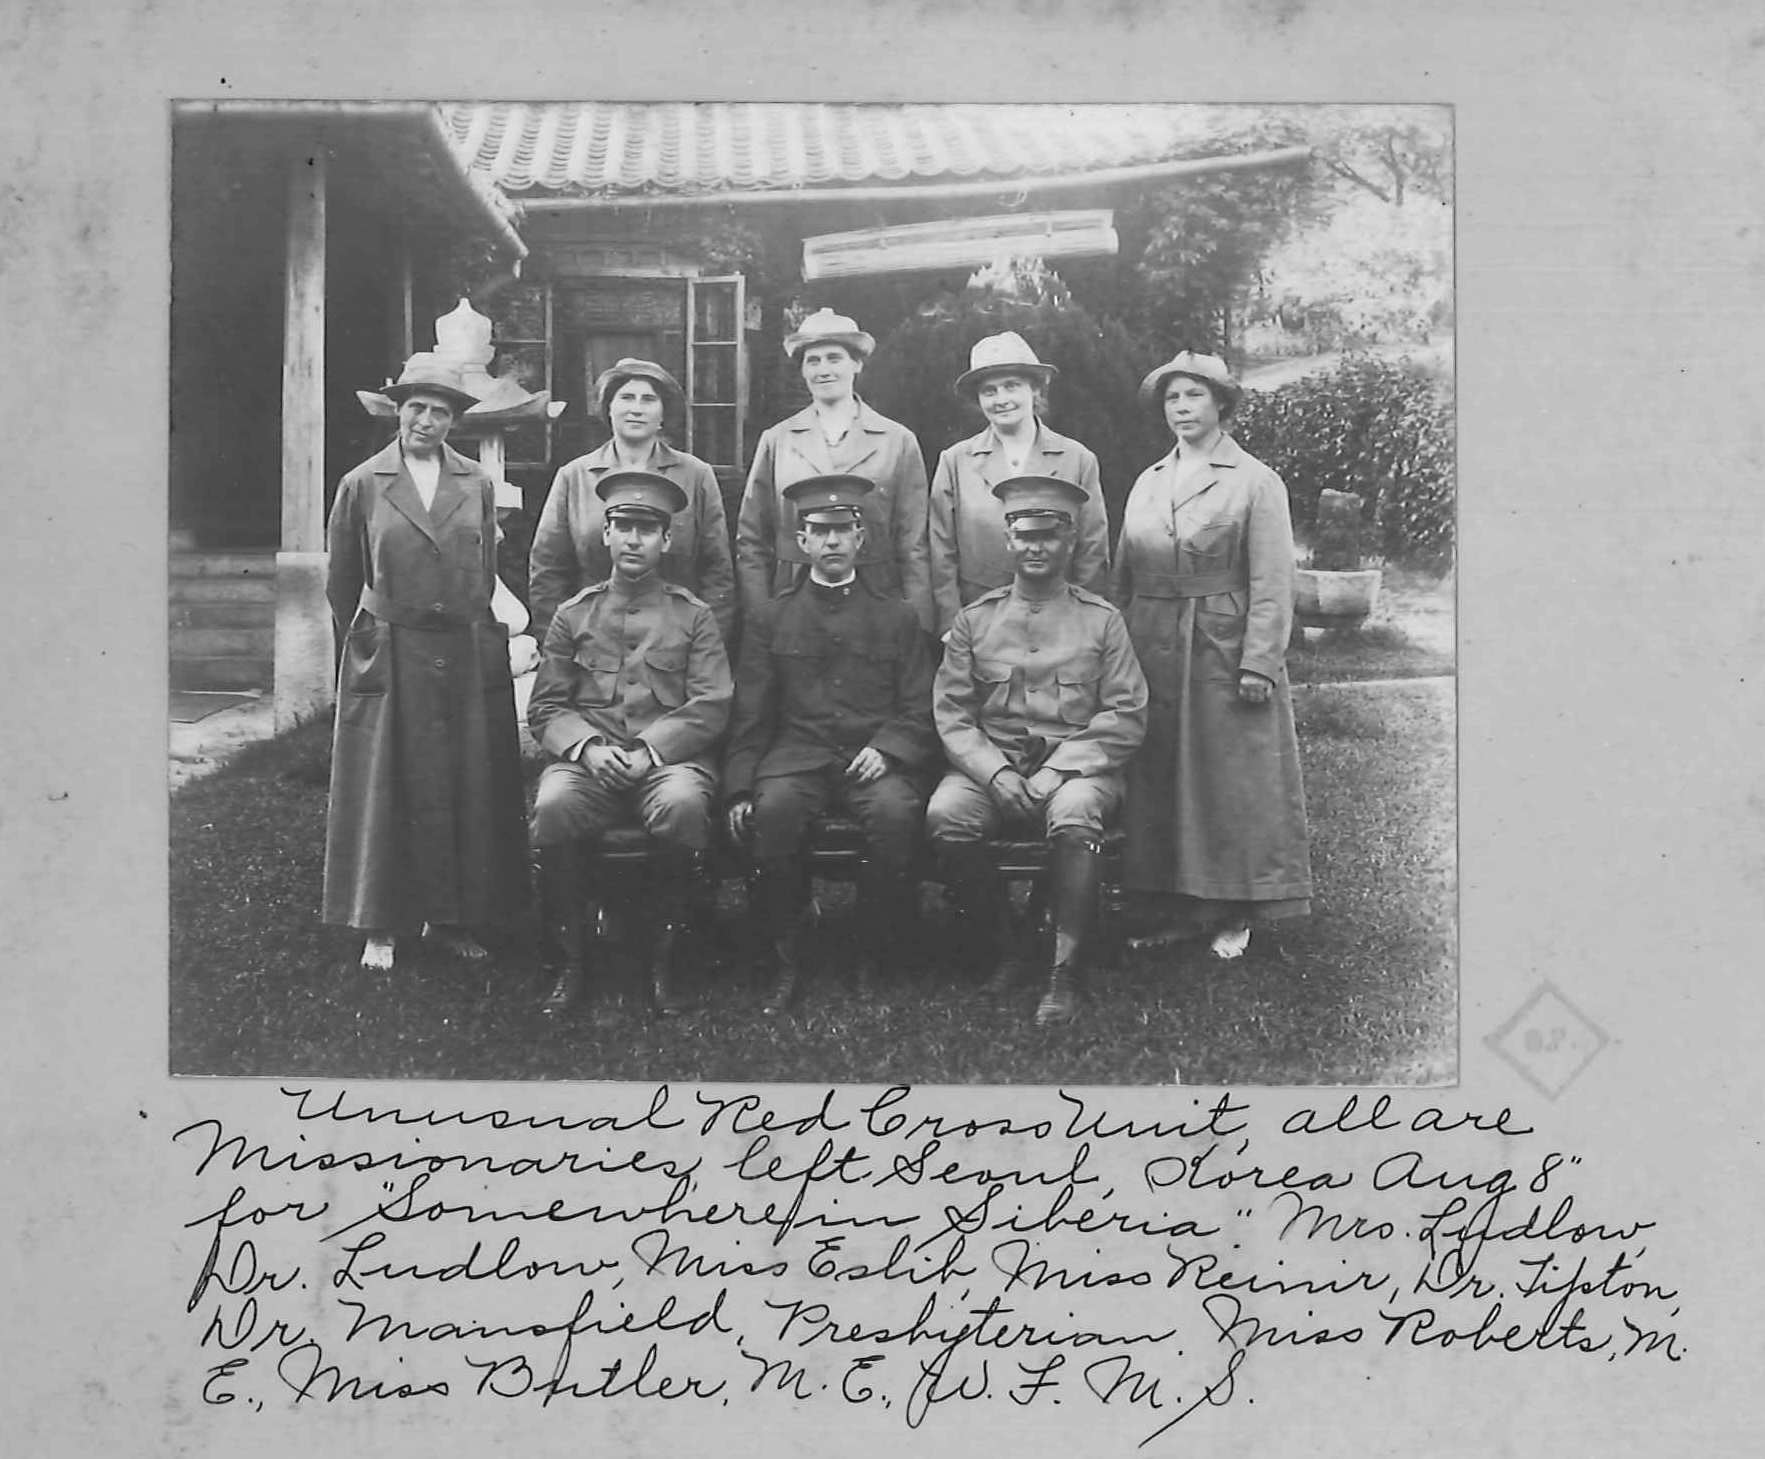 Unusual Red Cross Unit, all are
Missionaries, left Seoul, Korea Aug 8"
for "Somewhere in Siberia". Mrs. Ludlow,
Dr. Ludlow, Miss Eslib, Miss Reinir, Dr. Tipton,
Dr. Mansfield, Presbyterian. Miss Roberts, M.
E., Miss Butler, M. E., W. F. M. S.